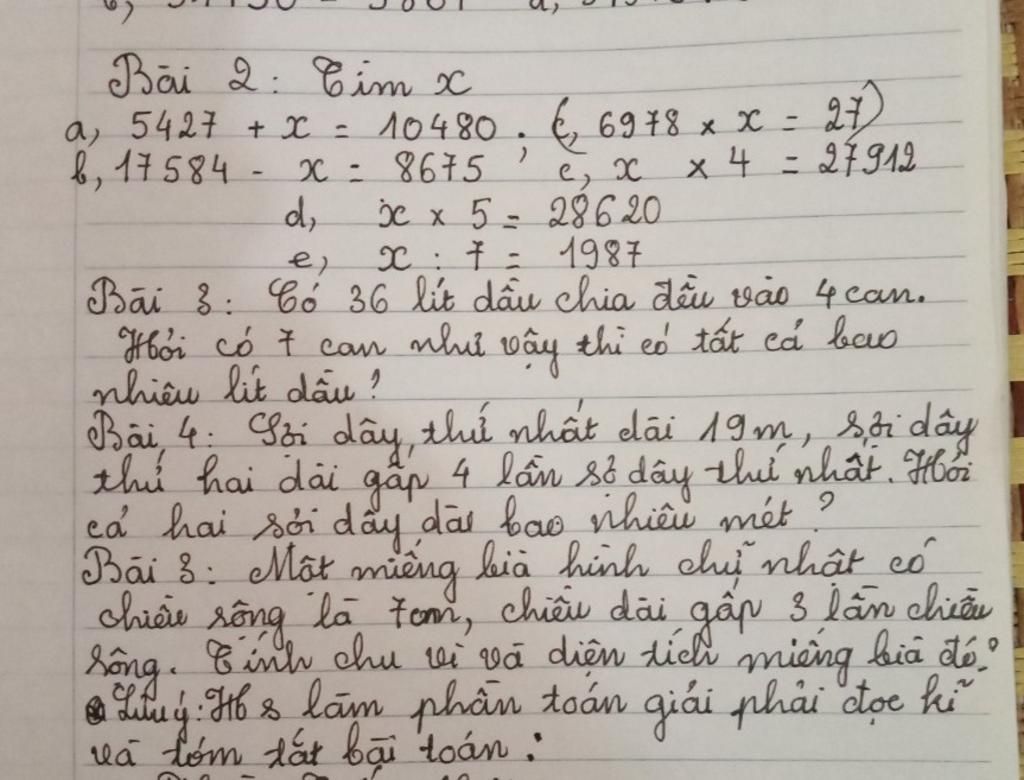 Bài 2: Tìm x
a, 5427 + x = 10480. (c, 6978 × x = 27)
b, 17584 - x = 8675 ; c, x × 4 = 27912
d, x × 5 = 28620
e, x : 7 = 1987
Bài 3: Có 36 lít dầu chia đều vào 4 can.
Hỏi có 7 can như vậy thì có tất cả bao
nhiêu lít dầu?
Bài 4: Sợi dây thứ nhất dài 19m, sợi dây
thứ hai dài gấp 4 lần số dây thứ nhất. Hỏi
cả hai sợi dây dài bao nhiêu mét?
Bài 3: Một miếng bìa hình chữ nhật có
chiều rộng là 7cm, chiều dài gấp 3 lần chiều
rộng. Tính chu vi và diện tích miếng bìa đó?
Lưu ý: Hs làm phần toán giải phải đọc kĩ
và tóm tắt bài toán.